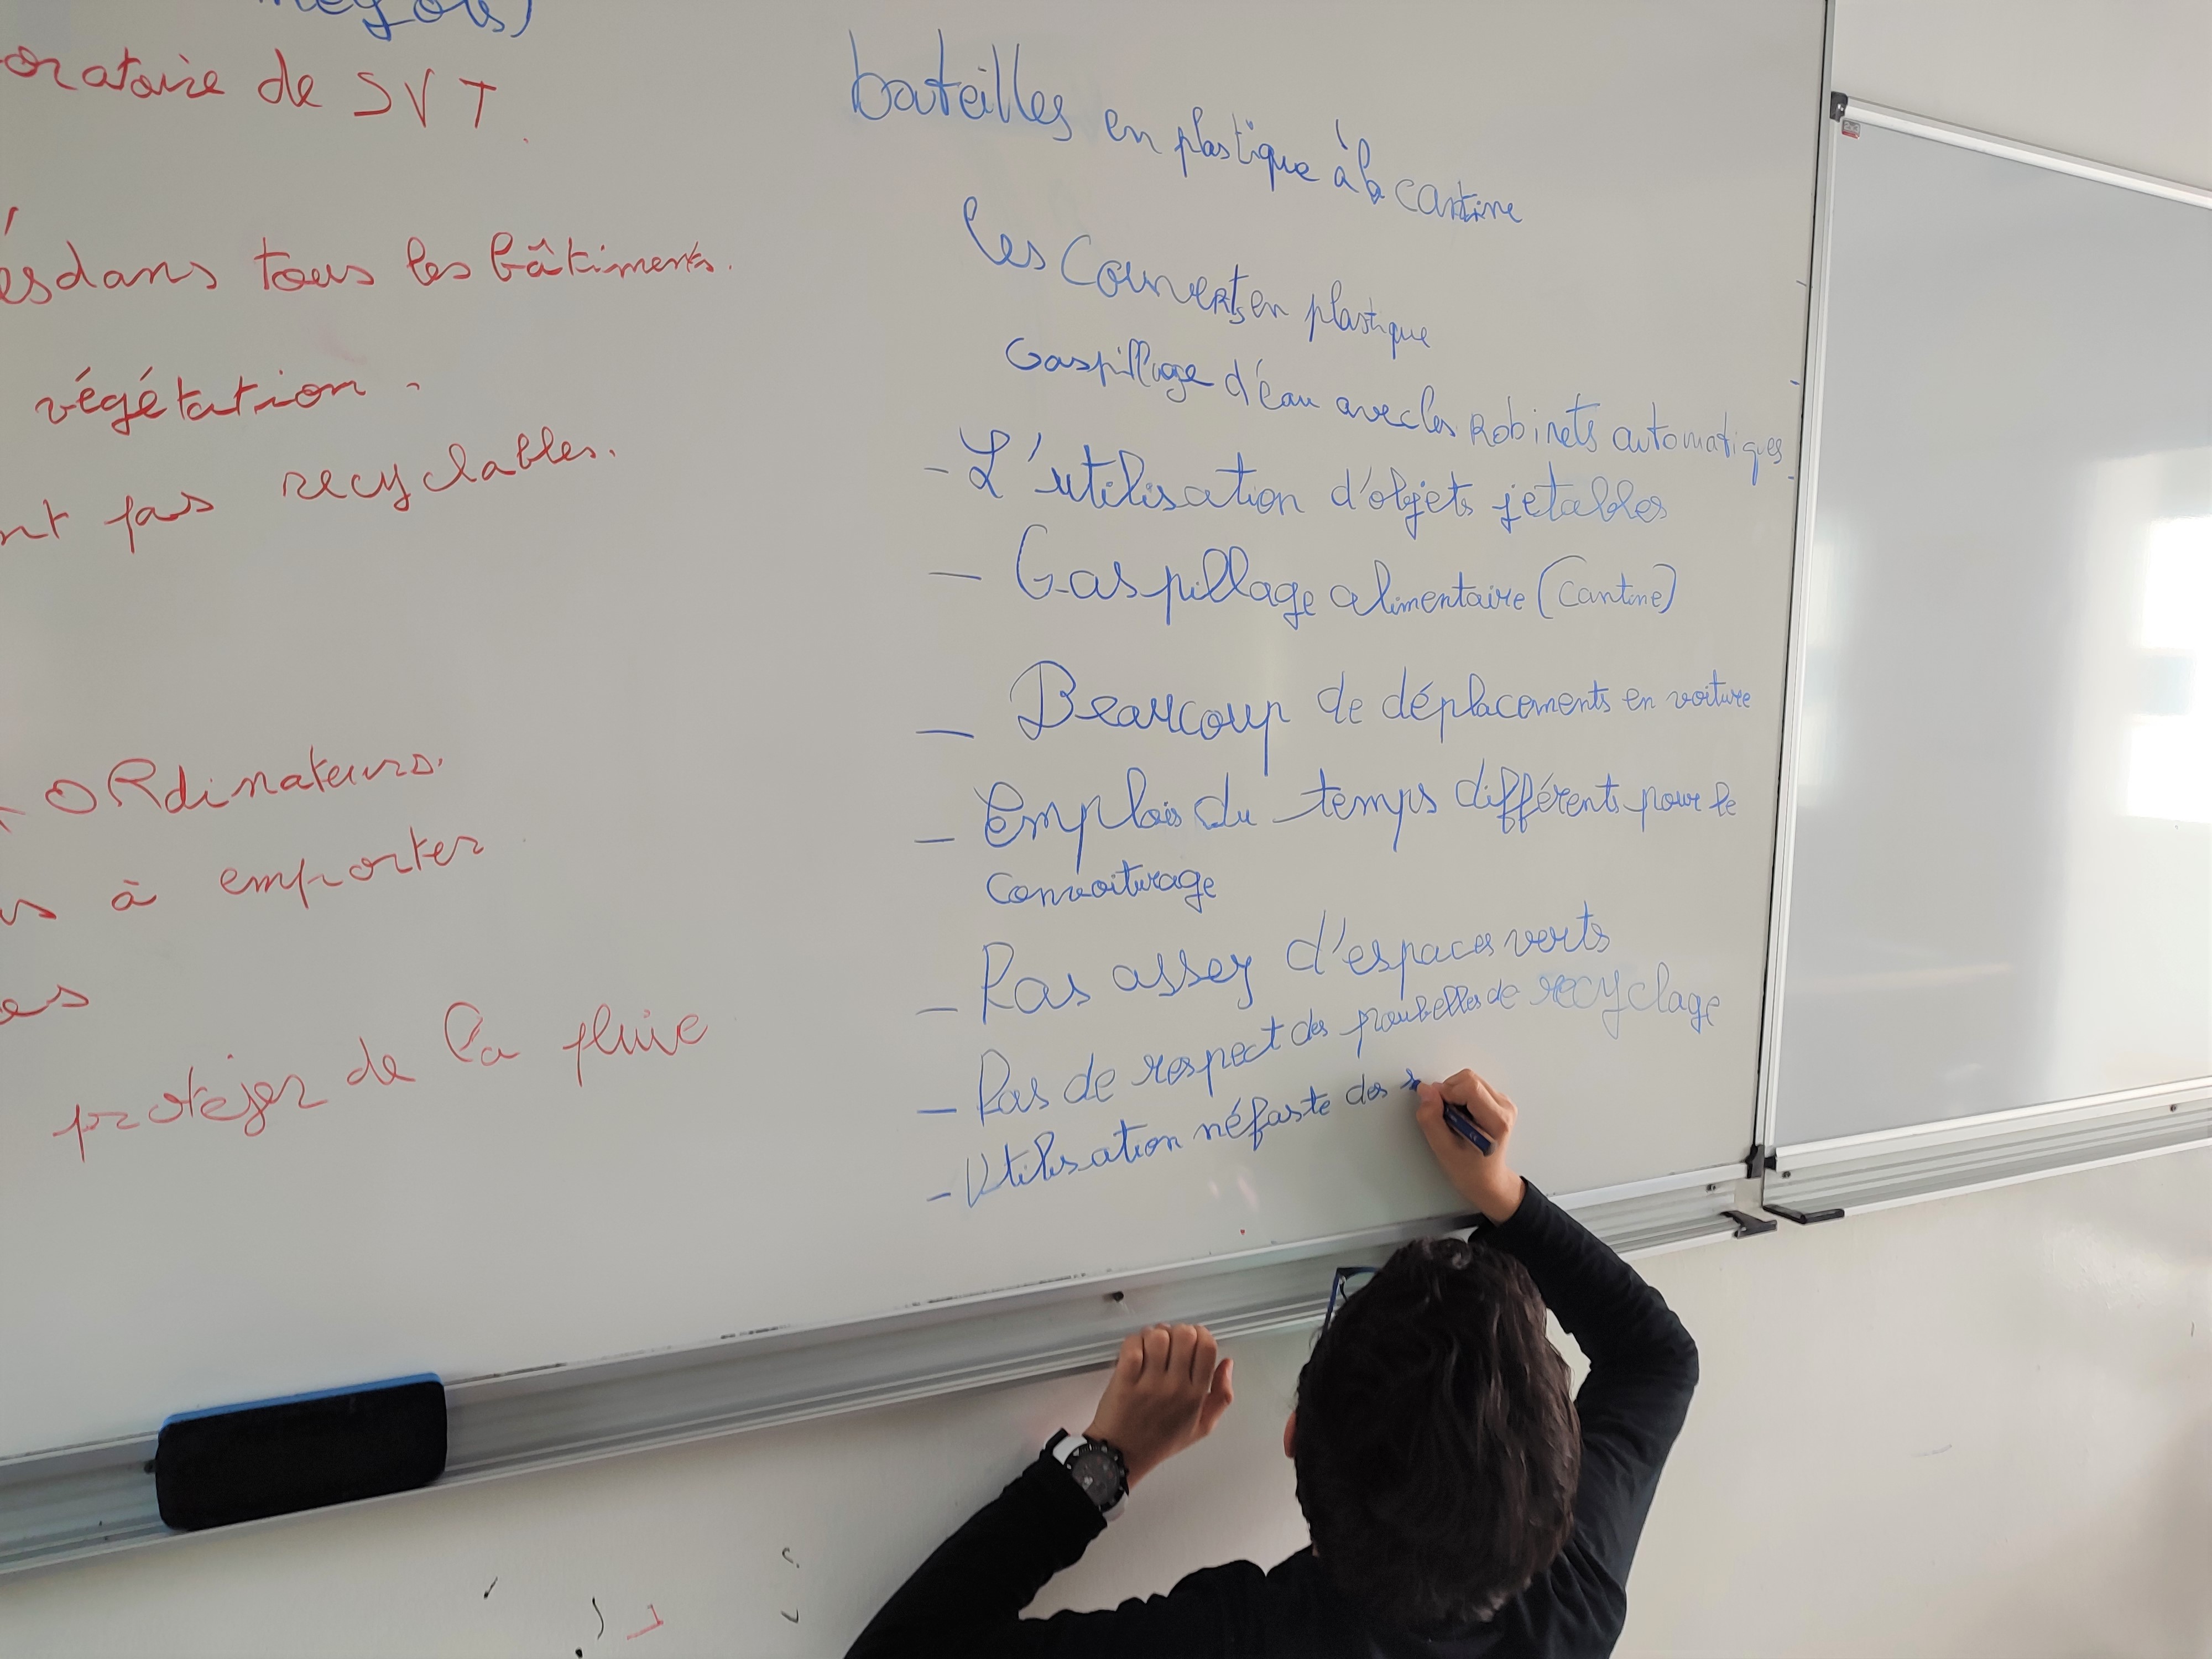 oratoire de SVT.
és dans tous les bâtiments.
végétation.
nt pas recyclables.
ORdinateurs.
à emporter
es
protéjer de la pluie
bouteilles en plastique à la cantine
les Couverts en plastique
Gaspillage d'éau avec les Robinets automatiques
- L'utilisation d'objets jetables
- Gaspillage alimentaire (Cantine)
- Beaucoup de déplacements en voiture
- Emplois du temps différents pour le
Convoiturage
- Pas assez d'espaces verts
- Pas de respect des poubelles de recyclage
- Utilisation néfaste des